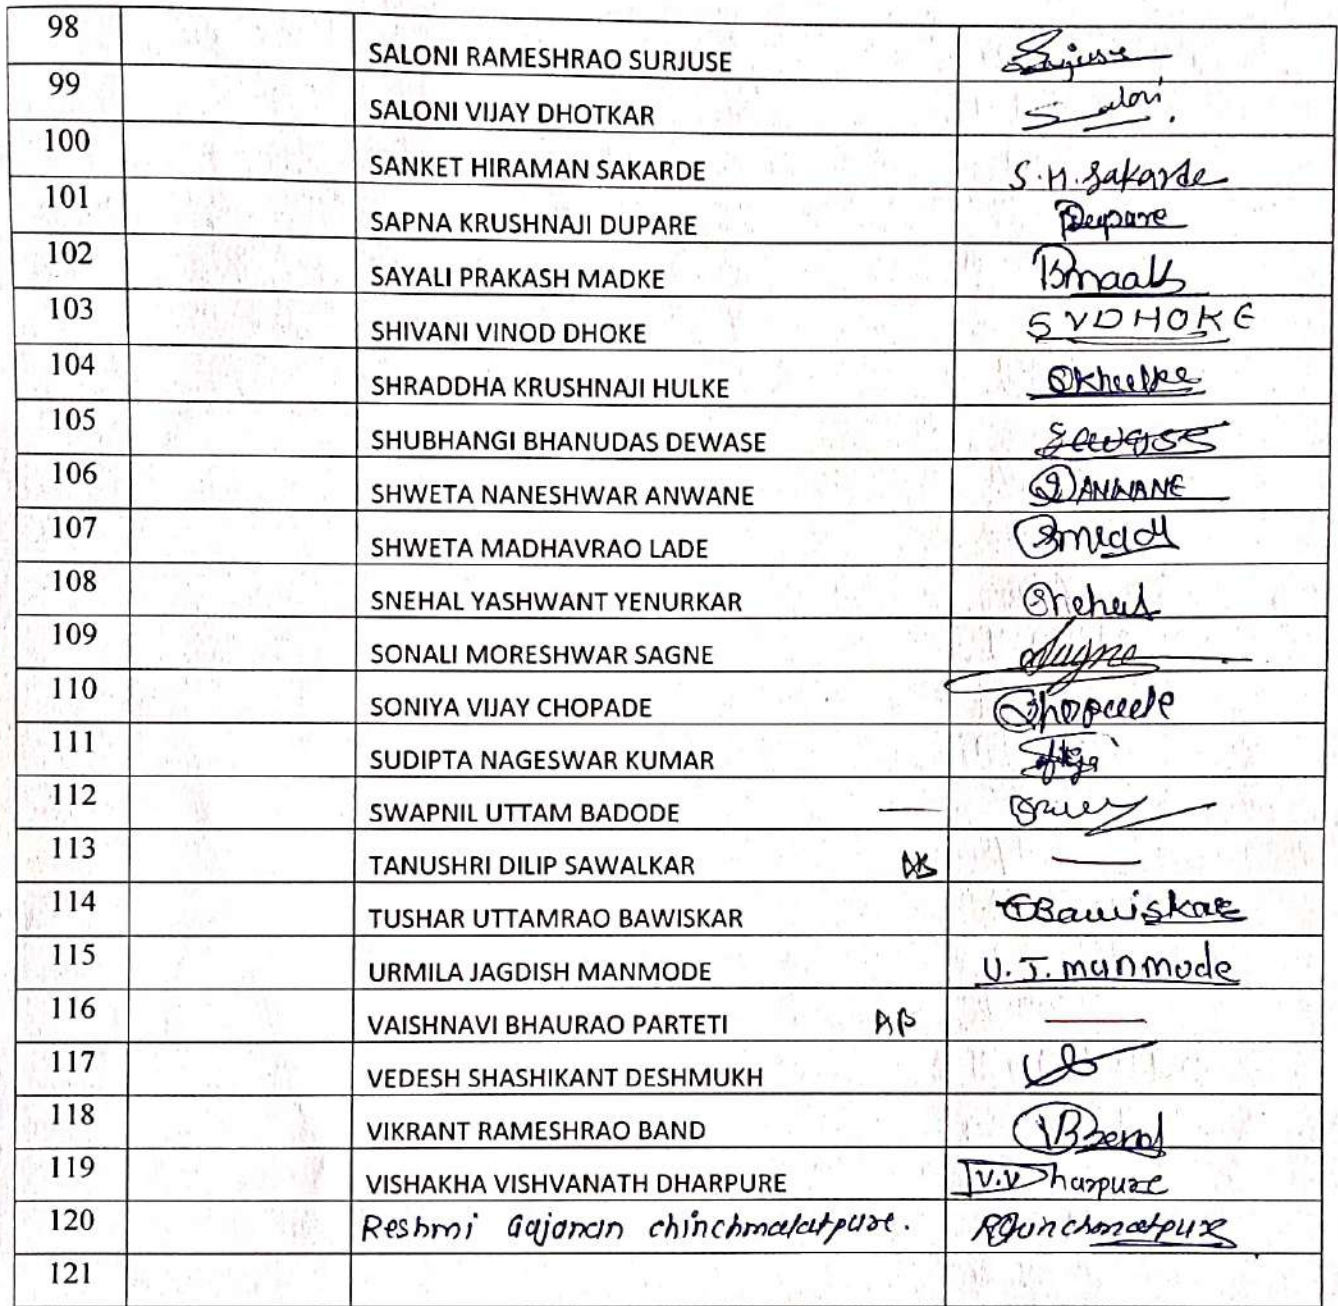 98 SALONI RAMESHRAO SURJUSE Surjuse
99 SALONI VIJAY DHOTKAR Saloni
100 SANKET HIRAMAN SAKARDE S.H. Sakarde
101 SAPNA KRUSHNAJI DUPARE Dupare
102 SAYALI PRAKASH MADKE
103 SHIVANI VINOD DHOKE SVDHOKE
104 SHRADDHA KRUSHNAJI HULKE SKhulke
105 SHUBHANGI BHANUDAS DEWASE
106 SHWETA NANESHWAR ANWANE ANWANE
107 SHWETA MADHAVRAO LADE
108 SNEHAL YASHWANT YENURKAR Snehal
109 SONALI MORESHWAR SAGNE Sagne
110 SONIYA VIJAY CHOPADE Chopade
111 SUDIPTA NAGESWAR KUMAR
112 SWAPNIL UTTAM BADODE —
113 TANUSHRI DILIP SAWALKAR AB —
114 TUSHAR UTTAMRAO BAWISKAR TBawiskar
115 URMILA JAGDISH MANMODE U.J. manmode
116 VAISHNAVI BHAURAO PARTETI AB —
117 VEDESH SHASHIKANT DESHMUKH
118 VIKRANT RAMESHRAO BAND VBand
119 VISHAKHA VISHVANATH DHARPURE V.V Dharpure
120 Reshmi Gajanan chinchmalatpure. RGchinchmalatpure
121